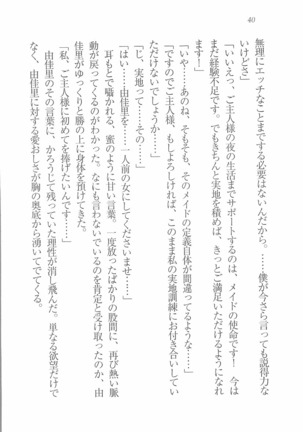 40
無理にエッチなことまでする必要はないんだから。……僕が今さら言っても説得力な
いけどさ」
「いいえっ、ご主人様の夜の生活までサポートするのは、メイドの使命です！　今は
まだ経験不足です。でもきちんと実地を積めば、きっとご満足いただけるようになり
ます！」
「いや……あのね、そもそも、そのメイドの定義自体が間違ってるような……」
「ですのでご主人様、もしよろしければ、このまま私の実地訓練にお付き合いしてい
ただけないでしょうか……」
「じ、実地って……その……」
「はい……由佳里を……一人前の女にしてくださいませ……」
　耳もとで囁かれる、蜜のように甘い言葉。一度放ったばかりの股間に、再び熱い脈
動が戻ってくるのがわかった。なにも言わないでいるのを肯定と受け取ったのか、由
佳里がゆっくりと勝の上に身体を預けてきた。
「私、ご主人様に初めてを捧げたいんです……」
　由佳里のその言葉に、かろうじて残っていた理性が消し飛んだ。単なる欲望だけで
なく、由佳里に対する愛おしさが胸の奥底から湧いてでてくる。